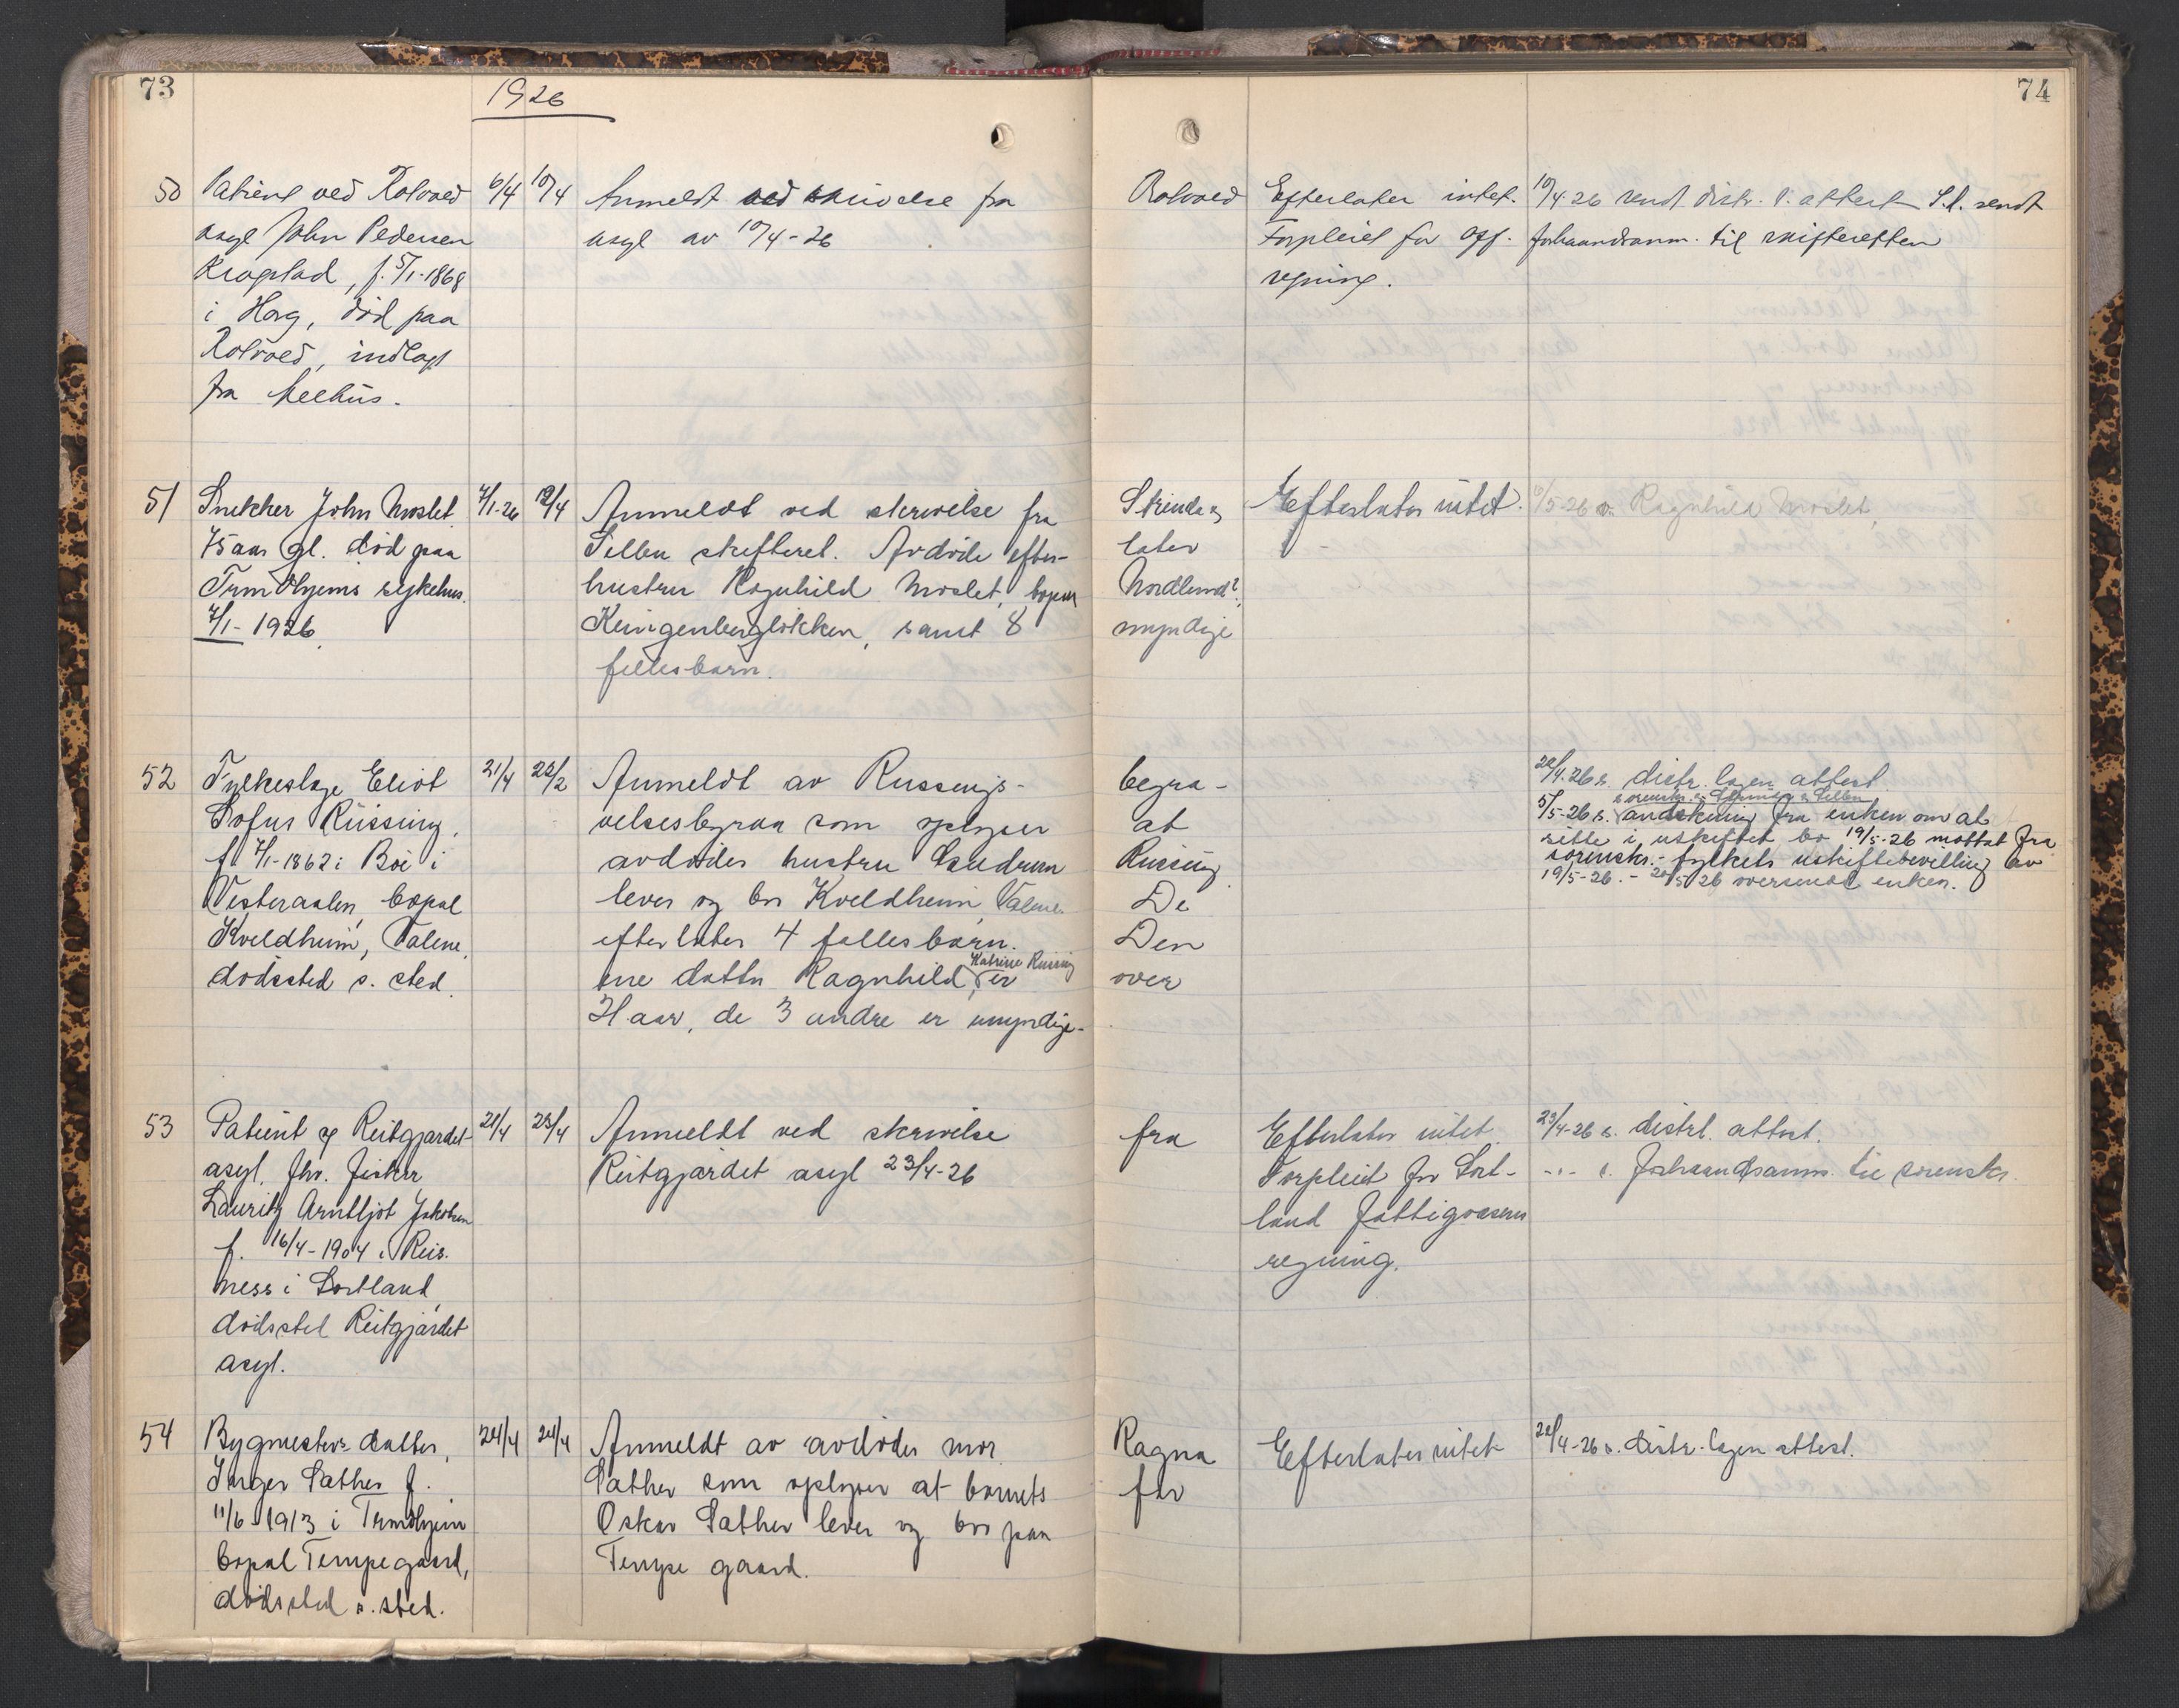 73
1926
74
50
Patient ved Rotvoed
asyl John Pedersen
Krogstad, f. 5/1-1868
i Horg, død paa
Rotvoed, indlagt
fra Melhus.
6/4
10/4
Anmeldt ved skrivelse fra
asyl av 10/4-26
Rotvoed
Efterlater intet.
Forpleiet for off.
regning.
10/4-26 sendt distr. l. attest S.d. sendt
forhaandsanm. til skifteretten
51
Snekker John Moslet
75 aar gl. død paa
Trondhjems sykehus
7/1-1926
7/1-26
19/4
Anmeldt ved skrivelse fra
Selbu skifteret. Avdøde efter-
hustru Ragnhild Moslet, bopæl
Klingenbergløkken, samt 8
fellesbarn.
Strinda og
later
Nordlund?,
myndige
Efterlater intet.
Ragnhild Moslet.
52
Fylkeslæge Eliot
Sofus Rüssing,
f. 7/1-1862 i Bøi
Vesteraalen, bopæl
Kveldheim, Valene,
dødssted s. sted.
21/4
22/2
Anmeldt av Russings
velsesbyraa som oplyser
avdødes hustru Gudrun
lever og bor Kveldheim, Valene
efterlater 4 fellesbarn.
ene datter Ragnhild Katrine Rüssing, er
21 aar, de 3 andre er umyndige.
begra-
at
Rüssing
De
Den
over
22/4-26 s. distr. lægen attest
sorenskr. i Strinda og Selbu
5/5-26 s. andøkning fra enken om at
sitte i uskiftet bo 19/5-26 mottat fra
sorenskr. fylkets uskiftebevilling av
19/5-26. - 20/5 26 oversendt enken.
53
Patient ved Reitgjærdet
asyl, fhv. fisker
Lauritz Arntljot Jakobsen
f. 16/4-1904 i Reis-
ness i Sortland,
dødssted Reitgjærdet
asyl.
21/4
23/4
Anmeldt ved skrivelse
Reitgjærdet asyl 23/4-26
fra
Efterlater intet.
Forpleiet for Sort-
land fattigvæsens
regning.
23/4-26 s. distrl. attest.
-"- s. forhaandsanm. til sorenskr.
54
Bygmesters datter,
Inger Sæther f.
11/6-1913 i Trondhjem
bopæl Tempe gaard,
dødssted s. sted.
24/4
24/4
Anmeldt av avdødes mor
Sæther som oplyser at barnets
Oskar Sæther lever og bor paa
Tempe gaard.
Ragna
far
Efterlater intet
24/4-26 s. distr. lægen attest.